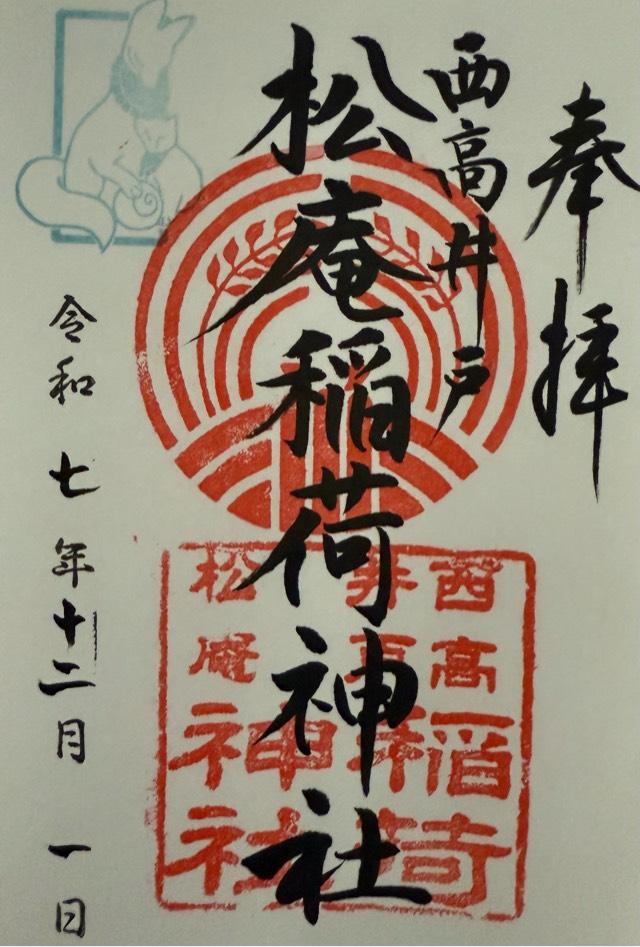 奉拝
西高井戸
松庵稲荷神社
西高井戸
松庵
稲荷
神社
令和七年十二月一日